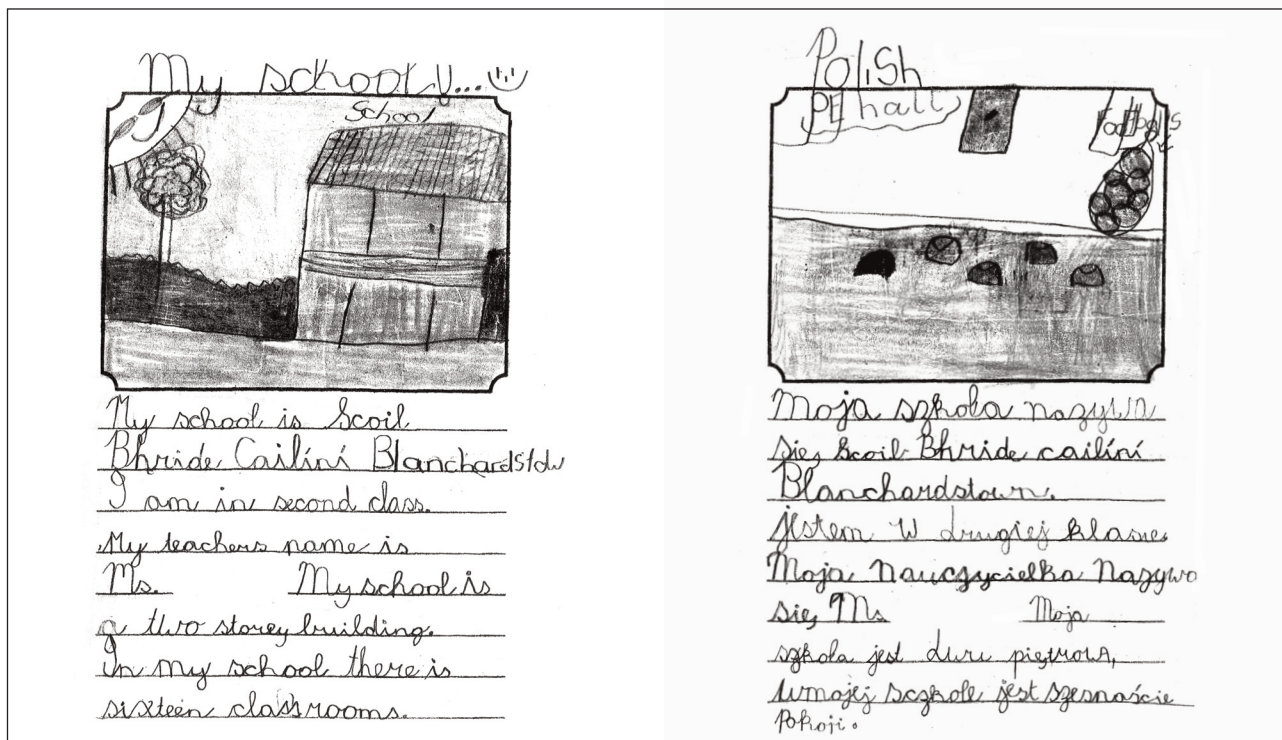 My school!...
School
My school is Scoil
Bhride Cailíní Blanchardstow
I am in second class.
My teachers name is
Ms. My school is
a two storey building.
In my school there is
sixteen classrooms.
Polish
PE hall
Footballs
Moja szkoła nazywa
się Scoil Bhride cailíní
Blanchardstown.
jestem w drugiej klasie.
Moja Nauczycielka Nazywa
się Ms Moja
szkoła jest dwu piętrowa,
wmojej sczkole jest szesnaście
Pokoji.